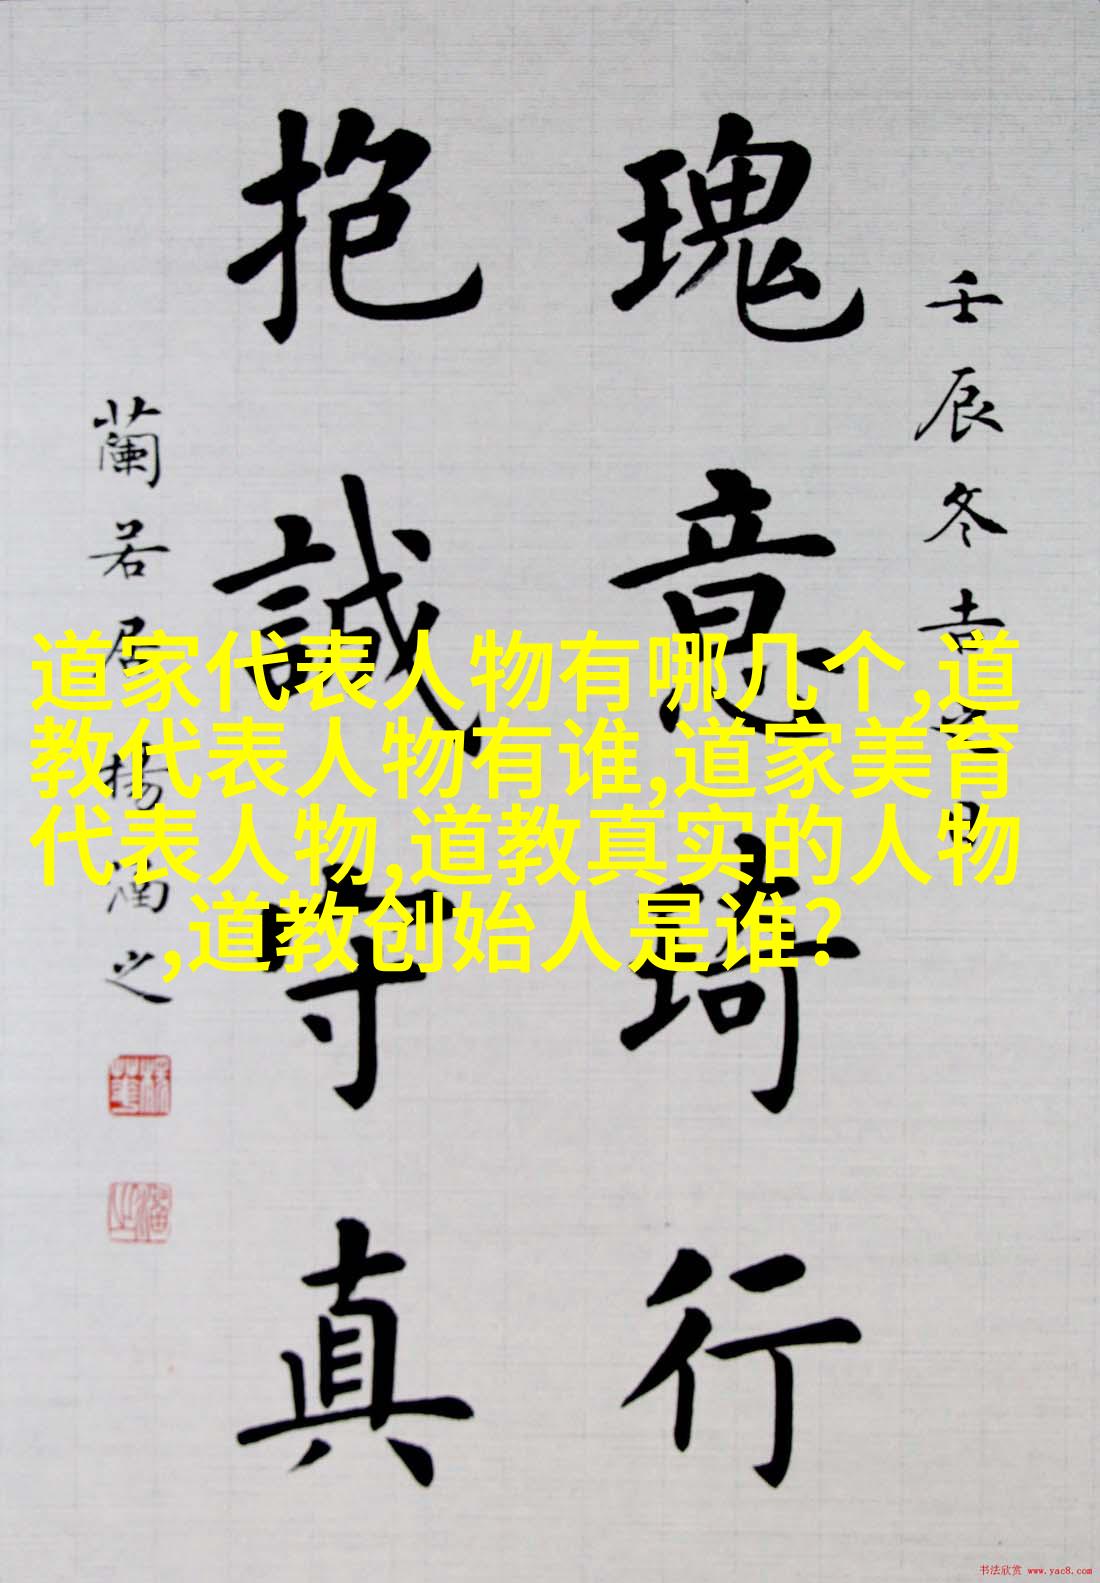 壬辰冬吉
瑰意琦行
抱誠守真
蘭若居楊
之
道家代表人物有哪几个,道
教代表人物有谁,道家美育
代表人物,道教真实的人物
,道教创始人是谁?
书法欣赏 www.yac8.com